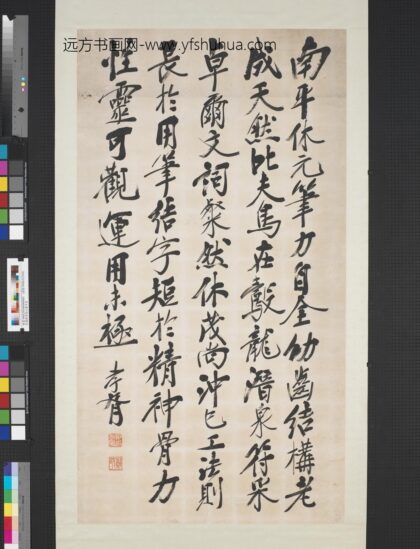 远方书画网-www.yfshuhua.com
南平休元筆力自全幼齒結構老
成天然比夫鳥在鷇龍潛泉符采
卓爾文詞粲然休茂尚沖已工法則
長於用筆結字短於精神骨力
性靈可觀運用未極 孝胥